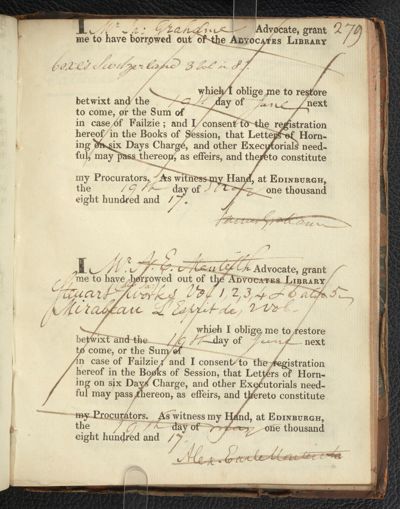 279
I Mr Ja: Grahame Advocate, grant
me to have borrowed out of the ADVOCATES LIBRARY
Coxe's Switzerland 3 vol in 8º.
which I oblige me to restore
betwixt and the 19th day of June next
to come, or the Sum of
in case of Failzie; and I consent to the registration
hereof in the Books of Session, that Letters of Horn-
ing on six Days Charge, and other Executorials need-
ful, may pass thereon, as effeirs, and thereto constitute
my Procurators. As witness my Hand, at EDINBURGH,
the 19th day of May one thousand
eight hundred and 17.
James Grahame
I Mr A. E. Monteith Advocate, grant
me to have borrowed out of the ADVOCATES LIBRARY
Stuarts Works Vol 1, 2, 3, 4 & 5
Mirabeau L'Esprit de, 2 vol.
which I oblige me to restore
betwixt and the 19th day of June next
to come, or the Sum of
in case of Failzie; and I consent to the registration
hereof in the Books of Session, that Letters of Horn-
ing on six Days Charge, and other Executorials need-
ful may pass thereon, as effeirs, and thereto constitute
my Procurators. As witness my Hand, at EDINBURGH,
the 19th day of May one thousand
eight hundred and 17
Alex. Earle Monteith